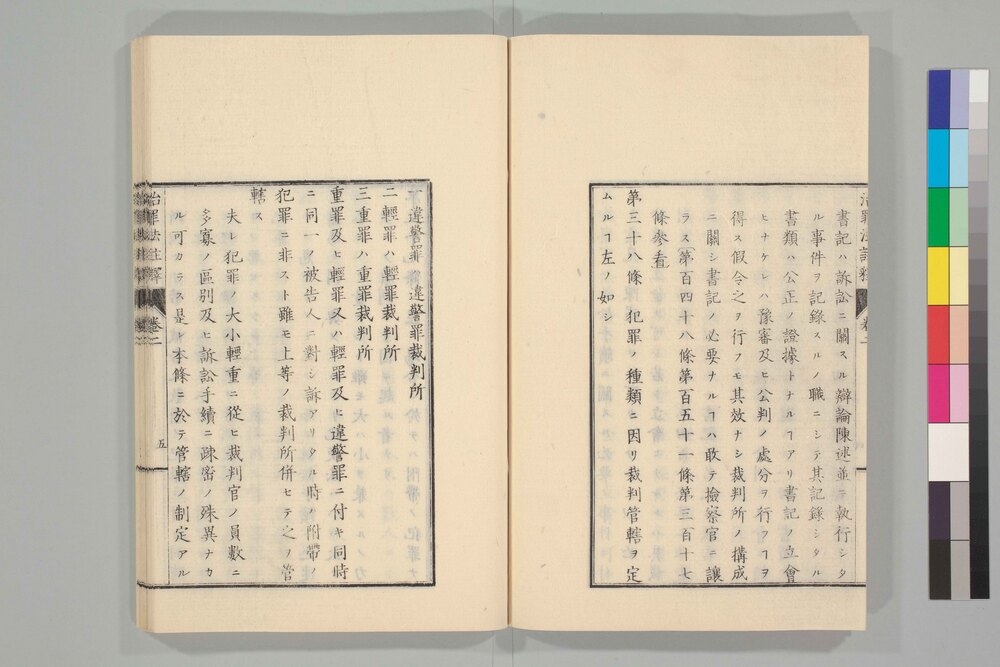 書記ハ訴訟ニ關スル辯論陳述並ニ執行シタ
ル事件ヲ記錄スルノ職ニシテ其記錄シタル
書類ハ公正ノ證據トナルヿアリ書記ノ立會
ヒナケレハ豫審及ヒ公判ノ處分ヲ行フヿヲ
得ス假令之ヲ行フモ其效ナシ裁判所ノ構成
ニ關シ書記ノ必要ナルヿハ敢テ撿察官ニ讓
ラス(第百四十八條第百五十一條第三百十七
條參看)
第三十八條犯罪ノ種類ニ因リ裁判管轄ヲ定
ムルヿ左ノ如シ
一違警罪ハ違警罪裁判所
二輕罪ハ輕罪裁判所
三重罪ハ重罪裁判所
重罪及ヒ輕罪又ハ輕罪及ヒ違警罪ニ付キ同時
ニ同一ノ被告人ニ對シ訴アリタル時ハ附帶ノ
犯罪ニ非スト雖モ上等ノ裁判所併セテ之ノ管
轄ス
夫レ犯罪ノ大小輕重ニ從ヒ裁判官ノ員數ニ
多寡ノ區別及ヒ訴訟手續ニ疎密ノ殊異ナカ
ル可カラス是レ本條ニ於テ管轄ノ制定アル
治罪法註釋 卷二 五